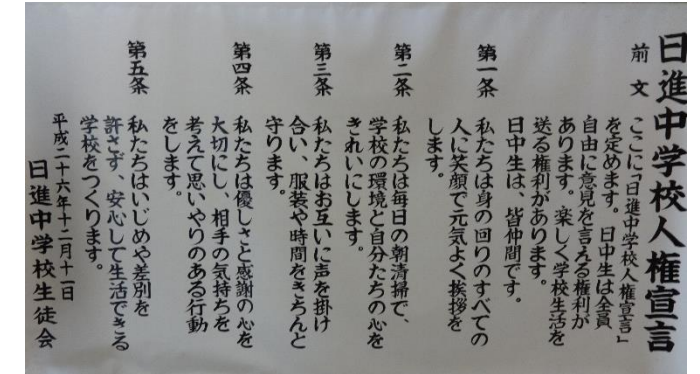 日進中学校人権宣言
前文
ここに「日進中学校人権宣言」
を定めます。日中生は全員
自由に意見を言える権利が
あります。楽しく学校生活を
送る権利があります。
日中生は、皆仲間です。
第一条
私たちは身の回りのすべての
人に笑顔で元気よく挨拶を
します。
第二条
私たちは毎日の朝清掃で、
学校の環境と自分たちの心を
きれいにします。
第三条
私たちはお互いに声を掛け
合い、服装や時間をきちんと
守ります。
第四条
私たちは優しさと感謝の心を
大切にし、相手の気持ちを
考えて思いやりのある行動
をします。
第五条
私たちはいじめや差別を
許さず、安心して生活できる
学校をつくります。
平成二十六年十二月十一日
日進中学校生徒会